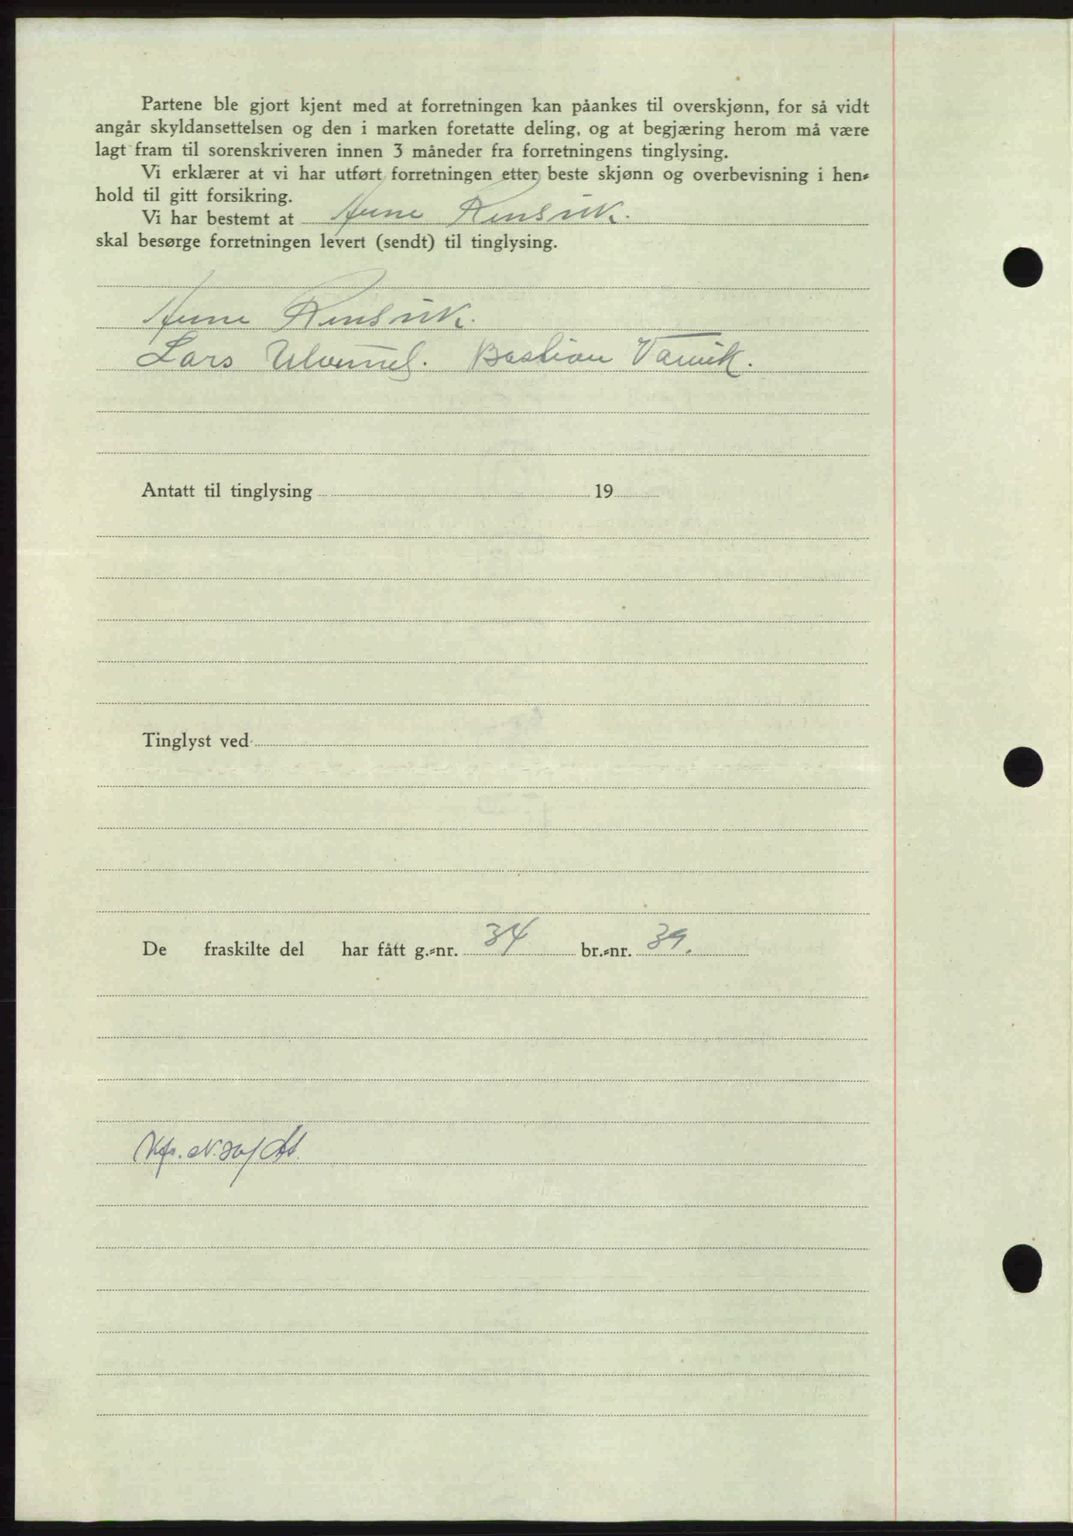 Partene ble gjort kjent med at forretningen kan påankes til overskjønn, for så vidt
angår skyldansettelsen og den i marken foretatte deling, og at begjæring herom må være
lagt fram til sorenskriveren innen 3 måneder fra forretningens tinglysing.
Vi erklærer at vi har utført forretningen etter beste skjønn og overbevisning i hen-
hold til gitt forsikring.
Vi har bestemt at Arne Rensvik.
skal besørge forretningen levert (sendt) til tinglysing.
Arne Rensvik.
Lars Ulvund. Bastian Vamvik.
Antatt til tinglysing 19
Tinglyst ved
De fraskilte del har fått g.-nr. 34 br.-nr. 39.